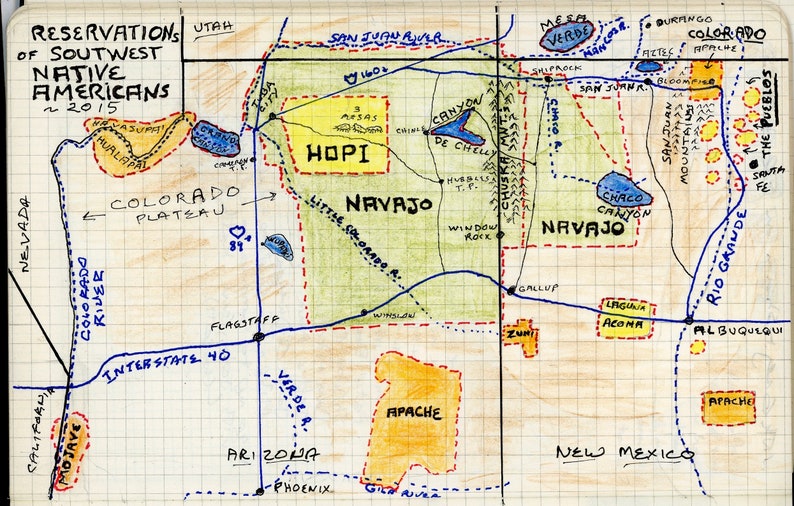 RESERVATIONS
OF SOUTWEST
NATIVE
AMERICANS
~ 2015
UTAH
SAN JUAN RIVER
MESA
VERDE
MANCOS R.
DURANGO
COLORADO
AZTEC
APACHE
160
SHIPROCK
SAN JUAN R.
BLOOMFIELD
TUBA
CITY
HAVASUPAI
HUALAPAI
GRAND
CANYON
CAMERON T.P.
3
MESAS
HOPI
CHINLE
CANYON
DE CHELLY
CHUSKA MTNS
CHACO R.
SAN JUAN
MOUNTAINS
THE PUEBLOS
SANTA
FE
HUBBLES
T.P.
COLORADO
PLATEAU
NAVAJO
LITTLE COLORADO R.
WINDOW
ROCK
CHACO
CANYON
NAVAJO
NEVADA
COLORADO
RIVER
89
GALLUP
RIO GRANDE
LAGUNA
ACOMA
FLAGSTAFF
WINSLOW
ZUNI
ALBUQUEQUI
INTERSTATE 40
VERDE R.
APACHE
APACHE
CALIFORNIA
MOJAVE
ARIZONA
NEW MEXICO
PHOENIX
GILA RIVER